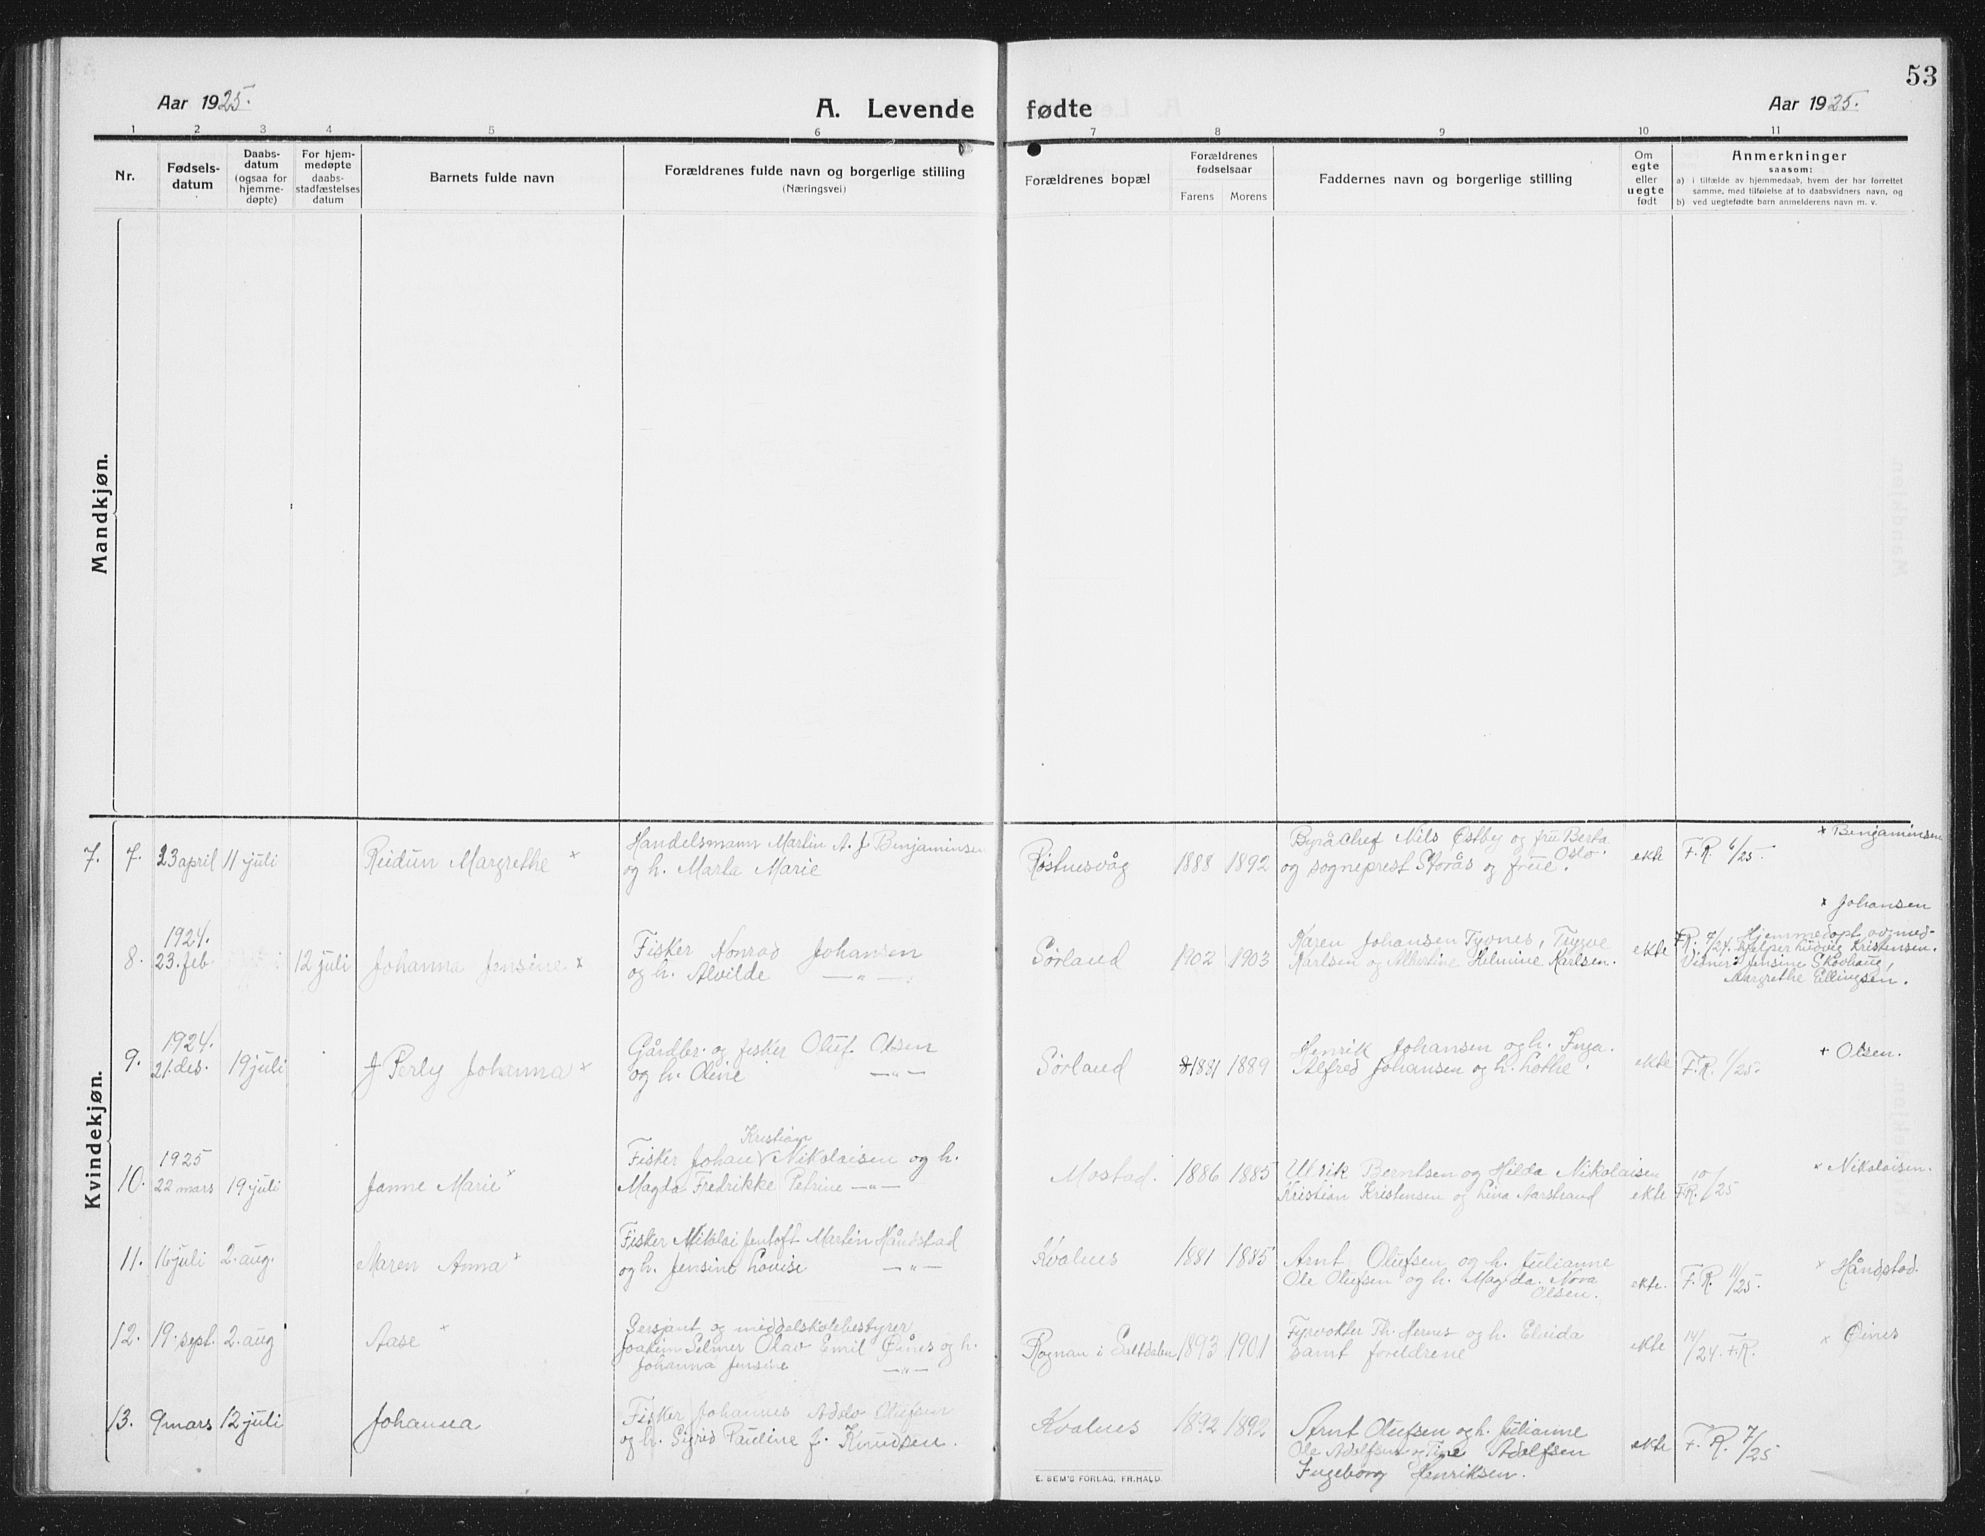 53
Aar 1925.
A. Levende fødte
Aar 1925.
1 2 3 4 5 6 7 8 9 10 11
Nr.
Fødsels-
datum
Daabs-
datum
(ogsaa for
hjemme-
døpte)
For hjem-
medøpte
daabs-
stadfæstelses
datum
Barnets fulde navn
Forældrenes fulde navn og borgerlige stilling
(Næringsvei)
Forældrenes bopæl
Forældrenes
fødselsaar
Farens Morens
Faddernes navn og borgerlige stilling
Om
egte
eller
uegte
født
Anmerkninger
saasom:
a) i tilfælde av hjemmedaab, hvem der har forrettet
samme, med tilføielse af to daabsvidners navn, og
b) ved uegtefødte barn anmelderens navn m. v.
Mandkjøn.
Kvindekjøn.
7. 7. 23 april 11 juli Reidun Margrethe x
Handelsmann Martin A. J Benjaminsen
og h. Marta Marie
Røstnesvåg 1888 1892
Byråchef Nils Østby og frue Berta
Oslo.
og sogneprest Storås og frue.
ekte F.R. 6/25.
x Benjaminsen
8. 1924.
23. feb. 12 juli Johanna Jensine x
Fisker Konrad Johansen
og h. Alvilde —"—
Sørland 1902 1903
Karen Johansen Tyvnes, Trygve
Karlsen og Albertine Helmine Karlsen.
ekte
x Johansen
F.R. 7/24. Hjemmedøpt av med-
hjelper Ludvig Kristensen.
Vidner: Jensine Skovhaug
Margrethe Ellingsen.
9. 1924.
21. des. 19 juli J Perly Johanna x
Gårdbr. og fisker Oluf Olsen
og h. Oline —"—
Sørland 1881 1889
Henrik Johansen og h. Inga.
Alfred Johansen og h. Lothe.
ekte F.R. 1/25.
+ Olsen.
10. 1925
22 mars 19 juli Janne Marie x
Kristian
Fisker Johan V Nikolaisen og h.
Magda Fredrikke Petrine —"—
Mostad. 1886 1885
Ulrik Berntsen og Hilda Nikolaisen
Kristian Kristensen og Lina Aarstrand
ekte F.R. 10/25
x Nikolaisen.
11. 16 juli 2. aug. Maren Anna x
Fisker Nikolai Jentoft Martin Håndstad
og h. Jensine Lovise —"—
Kvalnes 1881 1885
Arnt Olufsen og h. Julianne
Ole Olufsen og h. Magda. Nora
Olsen.
ekte. F.R. 11/25.
x Håndstad.
12. 19. sept. 2. aug Aase x
Sersjant og middelskolebestyrer
Joakim Selmer Olav Emil Øines og h.
Johanna Jensine —"—
Rognan i Saltdalen 1893 1901
Fyrvokter Th. Hernes og h. Elvida
samt foreldrene
ekte 14/24. F.R.
x Øines
13. 9 mars 12 juli Johanna
Fisker Johannes Adolv Olufsen
og h. Sigrid Pauline J. Knudsen.
Kvalnes 1892 1892
Arnt Olufsen og h. Julianne
Ole Adolfsen og Tine Adolfsen
Ingeborg Henriksen.
ekte F.R. 7/25
E. SEM'S FORLAG, FR.HALD.